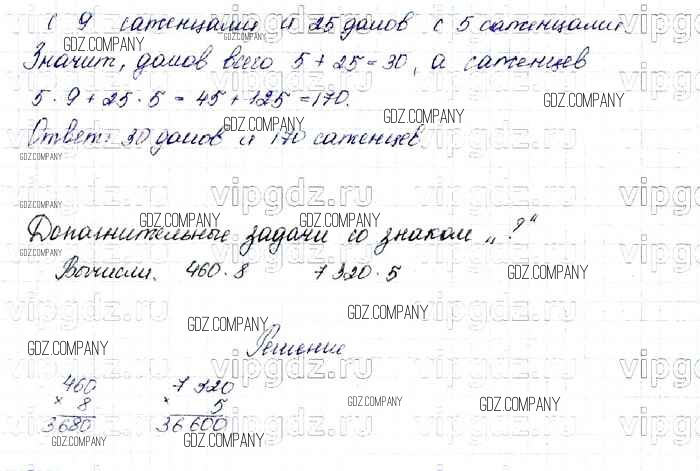 с 9 саженцами и 25 домов с 5 саженцами.
Значит, домов всего 5 + 25 = 30, а саженцев
5 · 9 + 25 · 5 = 45 + 125 = 170.
Ответ: 30 домов и 170 саженцев.
Дополнительные задачи со знаком „?“
Вычисли. 460 · 8 7 320 · 5
Решение
460 7 320
× 8 × 5
3680 36 600
GDZ.COMPANY
vipgdz.ru